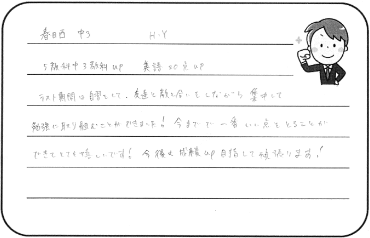 春日西 中3 H・Y
5教科中3教科up 英語 点up
テスト期間は自習室にて、友達と教え合いをしながら集中して
勉強に取り組むことができました!今までで一番いい点をとることが
できてとても嬉しいです!今後も成績up目指して頑張ります!